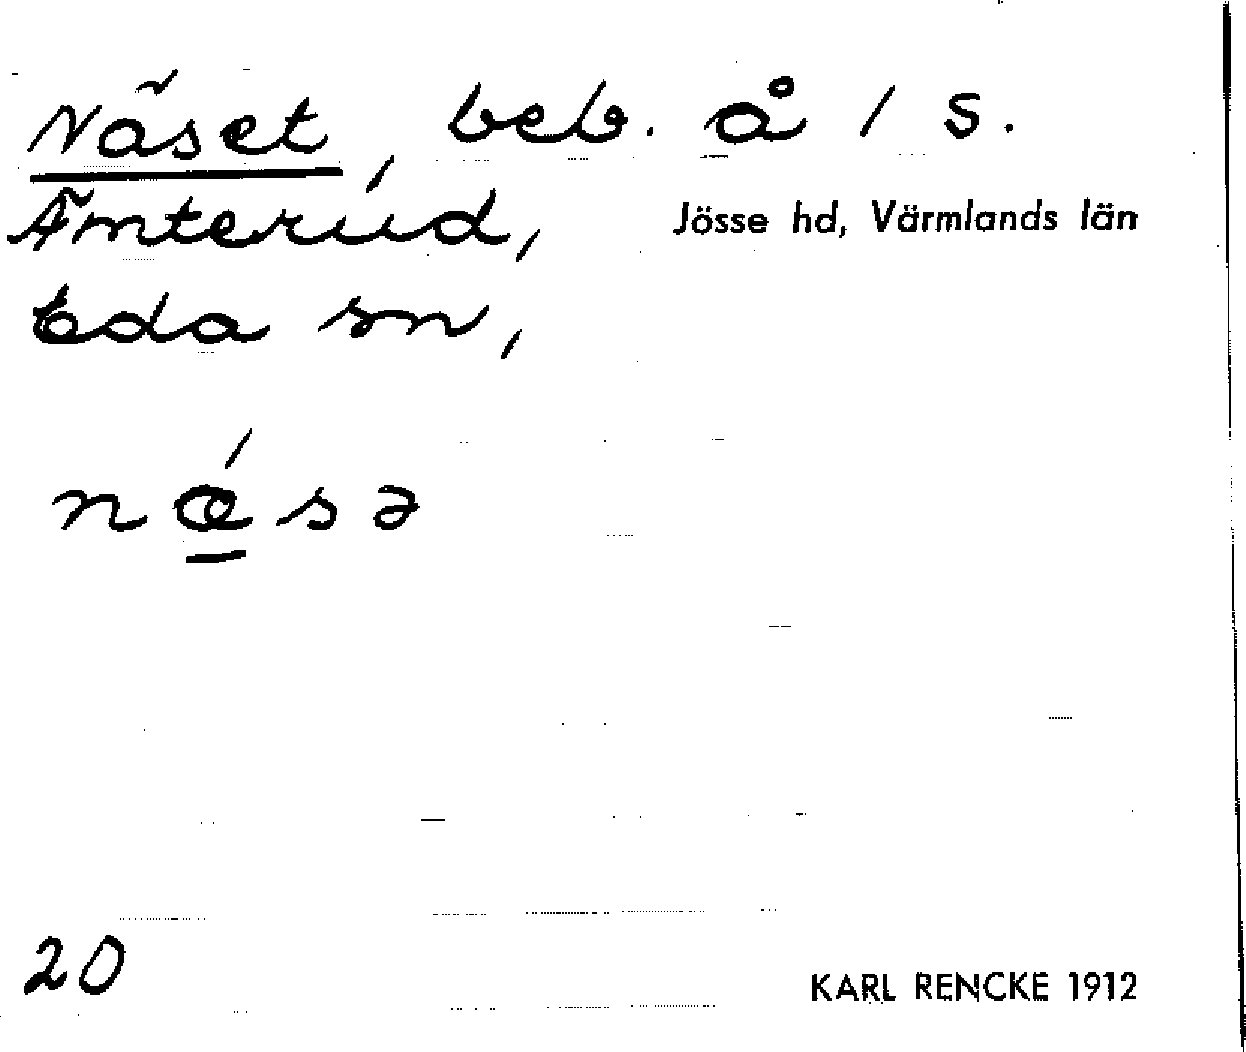 Näset, beb. å 1 S.
Ämterud,
Jösse hd, Värmlands län
Eda sn,
nǽ̲sə
20
KARL RENCKE 1912